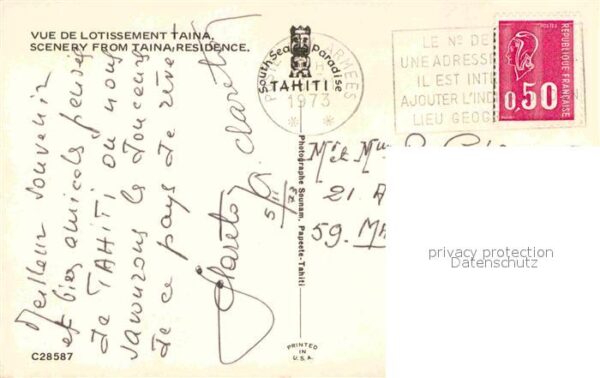 VUE DE LOTISSEMENT TAINA.
SCENERY FROM TAINA, RESIDENCE.
Meilleur souvenir
et bien amicales pensées
de TAHITI, où nous
savourons la douceur
de ce pays de rêve
5/11/73
C28587
South Sea Paradise
TAHITI
ARMEES
1973
Photographe Sounam, Papeete-Tahiti
PRINTED
IN
U.S.A.
LE Nº DE
UNE ADRESSE
IL EST INT
AJOUTER L'IND
LIEU GEOG
POSTES
REPUBLIQUE FRANÇAISE
0,50
M. et Mme
21
59. MA
privacy protection
Datenschutz